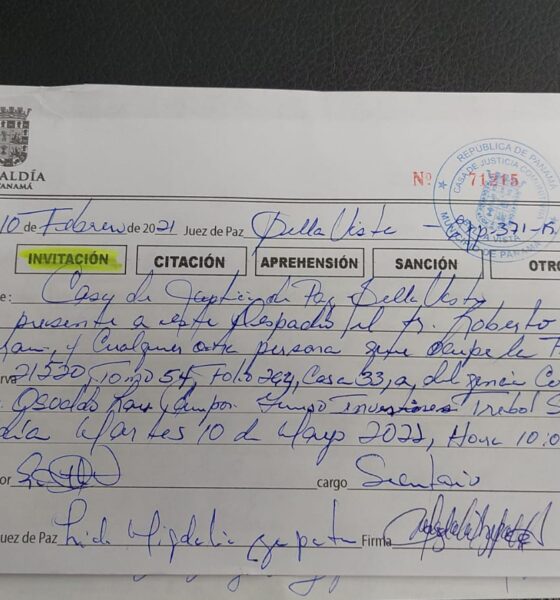 ALDÍA
PANAMÁ
REPÚBLICA DE PANAMÁ
CASA DE JUSTICIA COMUNITARIA
BELLA VISTA
Nº 71215
10 de Febrero de 2021 Juez de Paz Bella Vista - Exp-371-
INVITACIÓN CITACIÓN APREHENSIÓN SANCIÓN OTRO
e: Casa de Justicia de Paz Bella Vista
presente a este Despacho al Sr. Roberto
y Cualquier otra persona que ocupe la
21520, Tomo 54, Folio 242, Casa 33, a diligencia
Osvaldo Campos. Grupo Inversiones Trebol S
día Martes 10 de Mayo 2022, Hora 10:0
or cargo Secretario
uez de Paz Lida Migdalia Zapata Firma